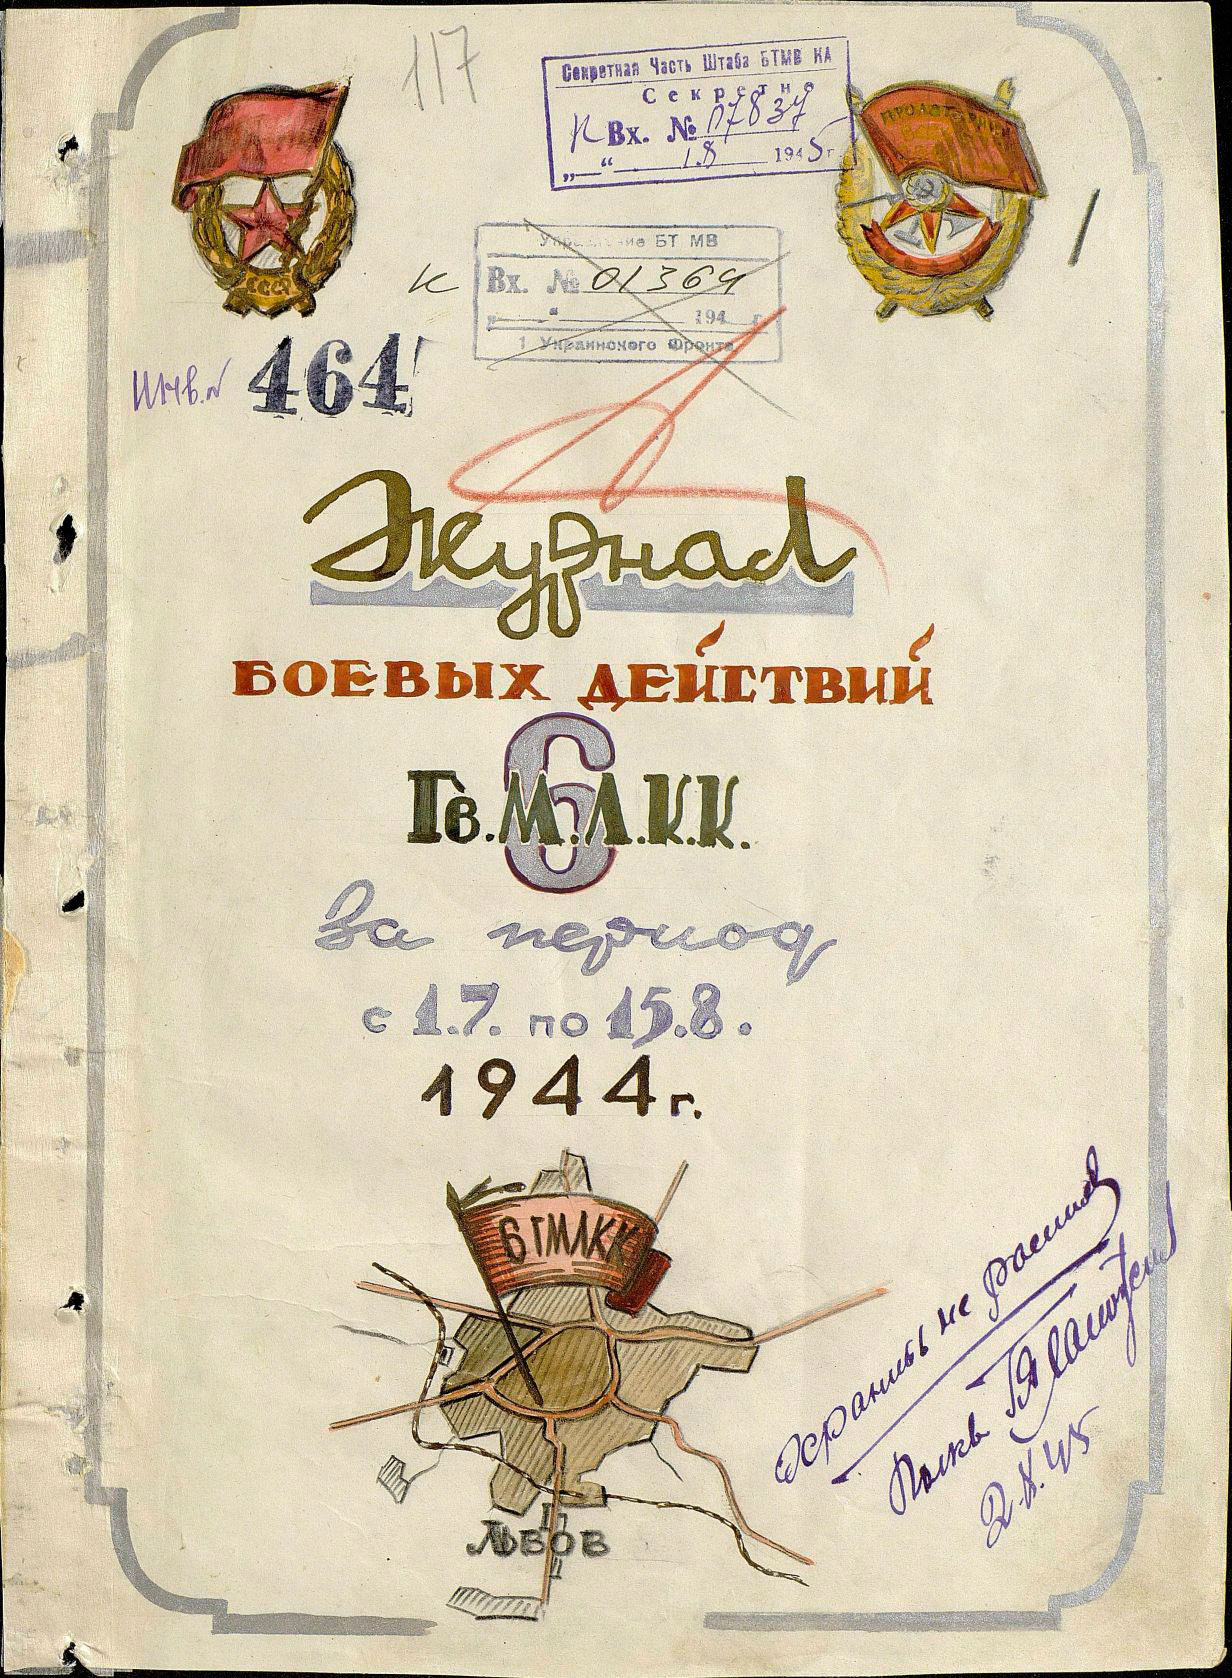 117
Секретная Часть Штаба БТМВ КА
Секретно
К Вх. № 07837
„ “ 1.8 1945 г
ПРОЛЕТАРИИ
СССР
Управление БТ МВ
К Вх. № 01364
„ “ 194 г
1 Украинского Фронта
Инв. № 464
Журнал
БОЕВЫХ ДЕЙСТВИЙ
6
Гв.М.Л.К.К.
За период
с 1.7. по 15.8.
1944 г.
6 ГМЛКК
ЛЬВОВ
Хранить не
Полкв
2.X.45